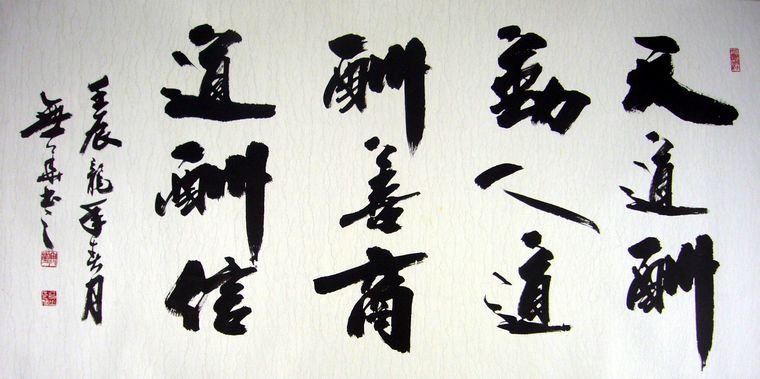 天道酬
勤人道
酬善商
道酬信
壬辰龍年春月
無書之